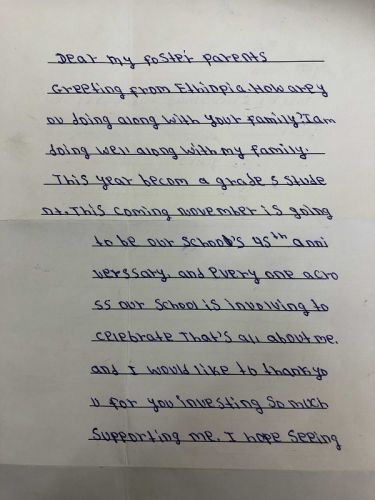 Dear my foster parents
Greeting from Ethiopia. How are y
ou doing along with your family? I am
doing well along with my family.
This year becom a grade 5 stude
nt. This coming november is going
to be our school's 45th anni
verssary, and Every one acro
ss our school is involving to
celebrate That's all about me.
and I would like to thank yo
u for you investing so much
Supporting me. I hope seeing